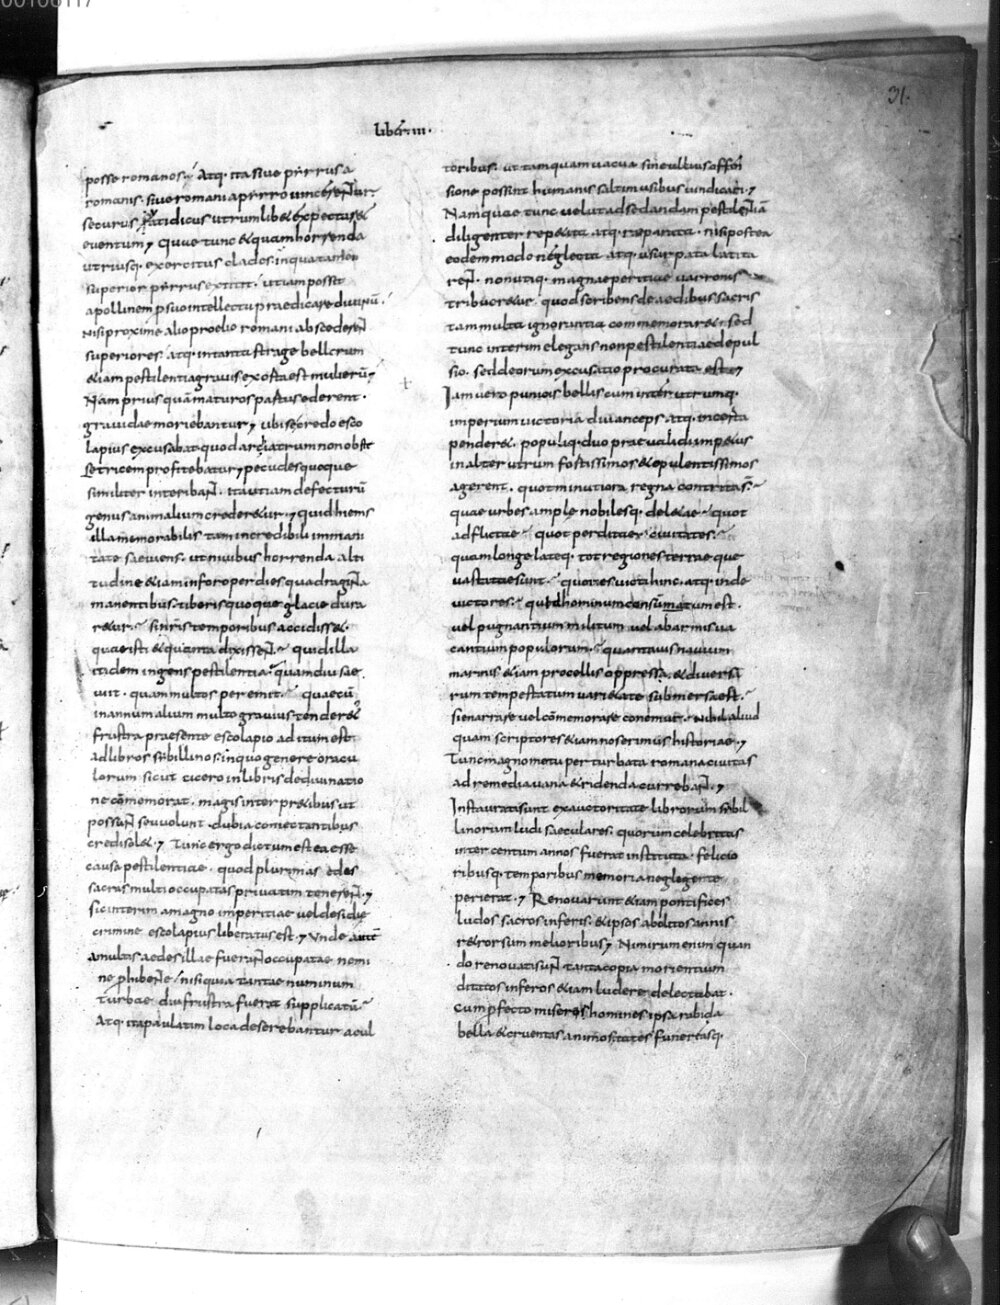 31.
liber .iii.
posse romanos. Atq. ita siue pyrrus a
romanis. siue romani a pyrro uincerentur.
securus fatidicus utrumlibet expectaret
euentum; Quae tunc et quam horrenda
utriusq. exercitus clades. in qua tamen
superior pyrrus extitit. ut iam posset
apollinem p suo intellectu praedicare diuinū.
nisi proxime alio proelio romani abscederent
superiores. atq. in tanta strage bellorum
etiam pestilentia grauis exorta est mulierū;
Nam prius quā maturos partus ederent.
grauidae moriebantur; ubi se credo esco
lapius excusabat quod archiatrum non obste
tricem profitebatur; pecudes quoque
similiter interibant. ita ut iam defecturū
genus animalium crederetur; quid hiems
illa memorabilis tam incredibili inmani
tate saeuiens. ut niuibus horrenda alti
tudine etiam in foro per dies quadraginta
manentibus. tiberis quoque glacie dura
retur. si nr̄is temporibus accidisset.
quae isti et quanta dixissent. quid illa
itidem ingens pestilentia. quamdiu sae
uiit. quam multos peremit. quae cū
in annum alium multo grauius tenderet
frustra praesente escolapio aditum est
ad libros sybillinos. in quo genere oracu
lorum sicut cicero in libris de diuinatio
ne cōmemorat. magis interpretibus ut
possunt seu uolunt. dubia coniectantibus
credi solet; Tunc ergo dictum est ea esse
causa pestilentiae. quod plurimas edes
sacras multi occupatas priuatim tenerent;
sic interim a magno imperitiae uel desidiae
crimine escolapius liberatus est; Unde autē
a multis aedes illae fuerant occupatae nemi
ne phibente. nisi quia tantae numinum
turbae diu frustra fuerat supplicatū
Atq. ita paulatim loca deserebantur a cul
toribus. ut tamquam uacua sine ullius offen
sione possint humanis saltim usibus uindicari;
Namquae tunc uelut ad sedandam pestilentiā
diligenter repetita. atq. reparata. nisi postea
eodem modo neglecta. atq. usurpata latita
rent. non utiq. magnae peritiae uarronis
tribueretur. quod scribens de aedibus sacris
tam multa ignorantia commemoraret. sed
tunc interim elegans non pestilentiae depul
sio. sed deorum excusatio procurata est;
Iam uero punicis bellis cum inter utrumq.
imperium uictoria diu anceps. atq. incerta
penderet. populiq. duo praeualidi impetus
in alterutrum fortissimos et opulentissimos
agerent. quot minutiora regna contrita s̄.
quae urbes amplę nobilesq. deletae. quot
adflictae. quot perditae ciuitates.
quam longe lateq. tot regiones terrae que
uastatae sunt. quoties uicti hinc. atq. inde
uictores. quid hominum consūmatum est.
uel pugnantium militum uel ab armis ua
cantium populorum. quanta uis nauium
marinis etiam procellis oppressa. et diuersa
rum tempestatum uarietate submersa est.
si enarrare uel cōmemorare conemur. Nihil aliud
quam scriptores etiam nos erimus historiae;
Tunc magno metu perturbata romana ciuitas
ad remedia uana et ridenda currebant;
Instaurati sunt ex auctoritate librorum sybil
linorum ludi saeculares. quorum celebritas
inter centum annos fuerat instituta. felicio
ribusq. temporibus memoria neglegente
perierat; Renouarunt etiam pontifices
ludos sacros inferis. et ipsos abolitos annis
retrorsum melioribus; Nimirum enim quan
do renouati sunt tanta copia morientium
ditatos inferos etiam ludere delectabat.
cum pfecto miseros homines ipsa rabida
bella et cruentas animositates funereasq.